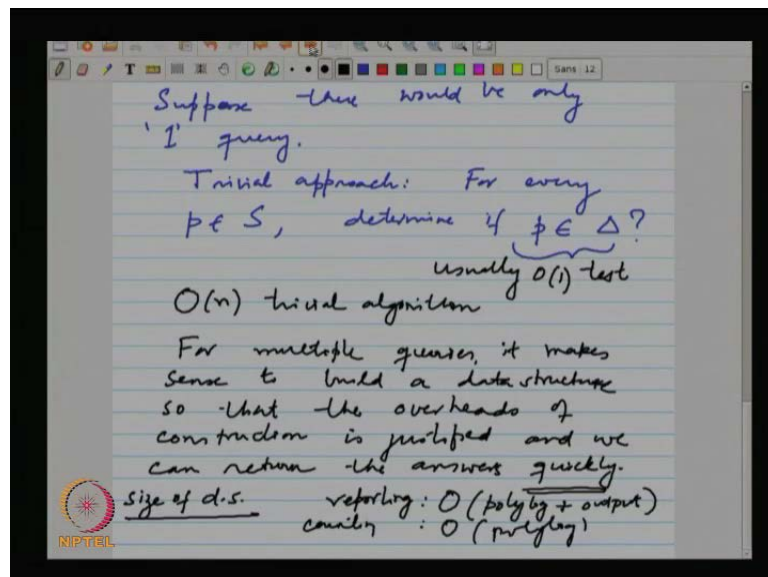 Sans 12
Suppose there would be only
'1' query.
Trivial approach: For every
p ∈ S, determine if p ∈ Δ?
usually O(1) test
O(n) trivial algorithm
For multiple queries, it makes
sense to build a data structure
so that the overheads of
construction is justified and we
can return the answers quickly.
size of d.s. reporting: O(polylog + output)
counting : O(polylog)
NPTEL